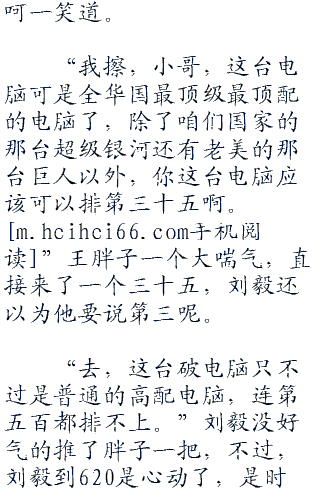 呵一笑道。
“我擦，小哥，这台电
脑可是全华国最顶级最顶配
的电脑了，除了咱们国家的
那台超级银河还有老美的那
台巨人以外，你这台电脑应
该可以排第三十五啊。
[m.hcihci66.com手机阅
读]”王胖子一个大喘气，直
接来了一个三十五，刘毅还
以为他要说第三呢。
“去，这台破电脑只不
过是普通的高配电脑，连第
五百都排不上。”刘毅没好
气的推了胖子一把，不过，
刘毅到620是心动了，是时